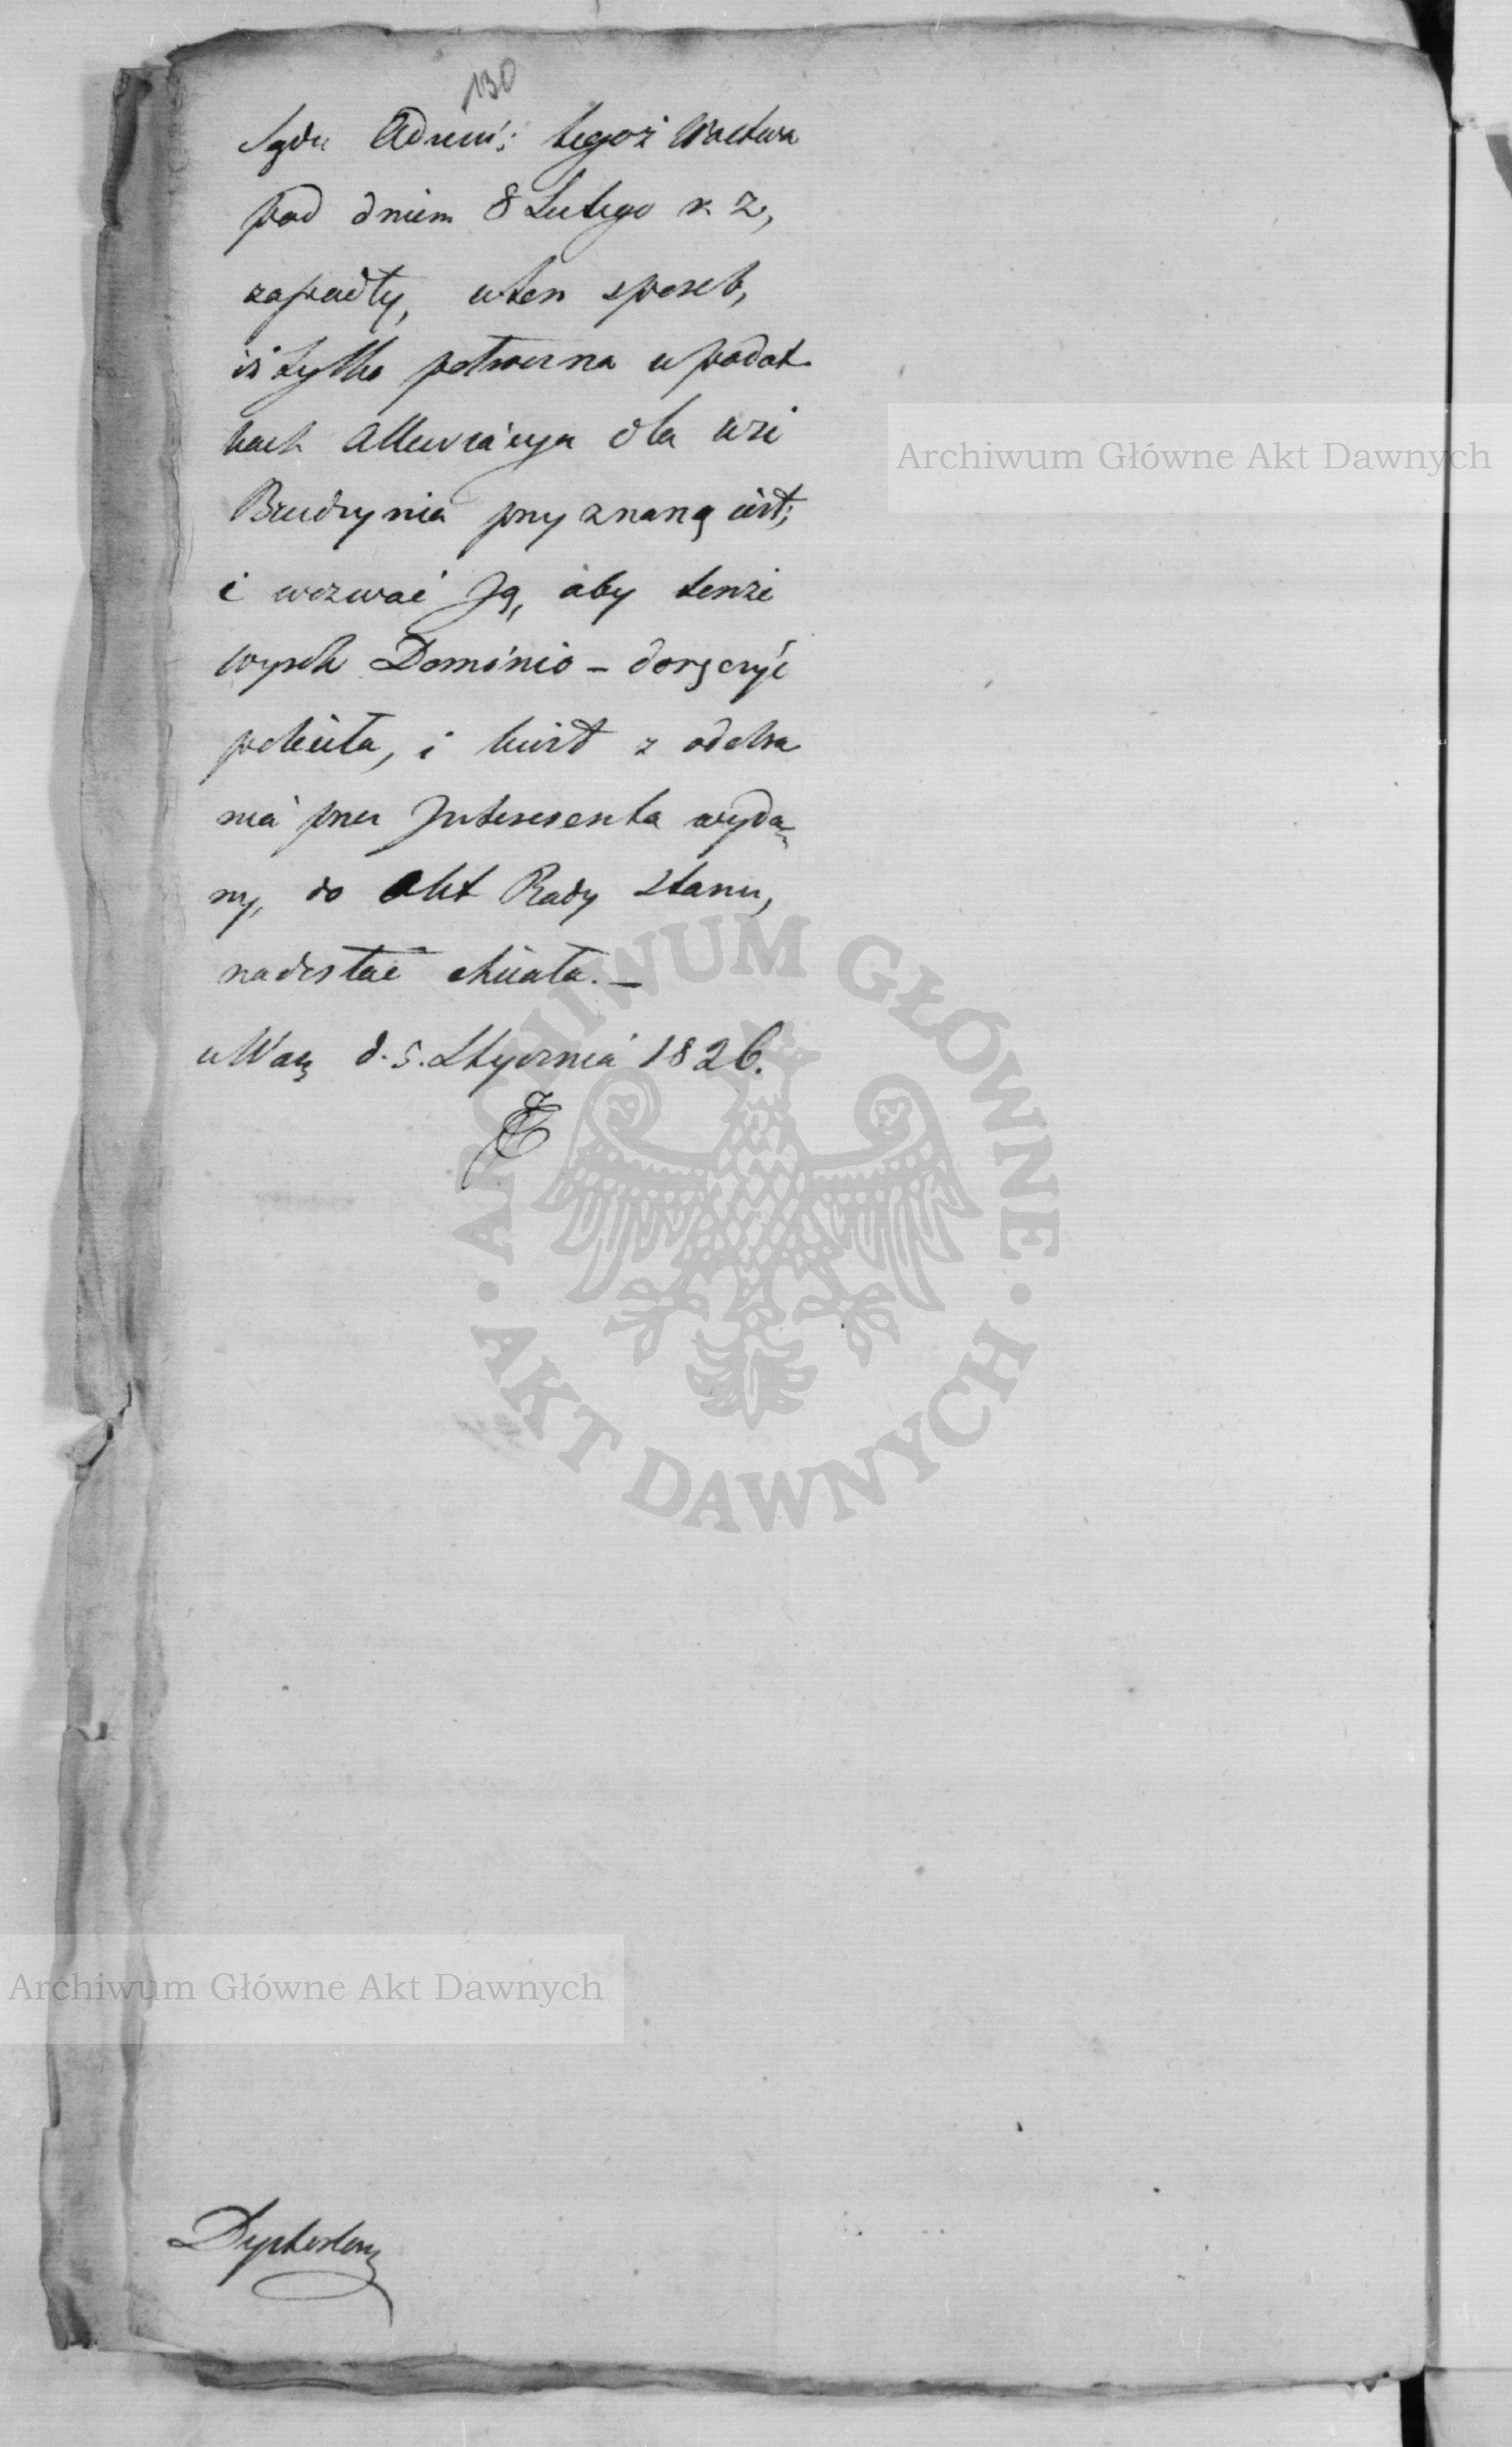 130
Sądu Admin: tegoż Woctwa
pod dniem 8 Lutego r. z,
zapadły, w ten sposob,
iż tylko potroczna w podat
kach Allewiacya dla wsi
Brudzynia przyznaną iest;
i wezwać Ją, aby tenże
wyrok Dominio – doręczyć
poleciła, i kwit z odebra
nia przez Interesenta wyda=
ny, do Akt Rady Stanu,
nadesłać chciała. –
w War d. 5. Stycznia 1826.
Archiwum Główne Akt Dawnych
ARCHIWUM GŁÓWNE
AKT DAWNYCH
Archiwum Główne Akt Dawnych